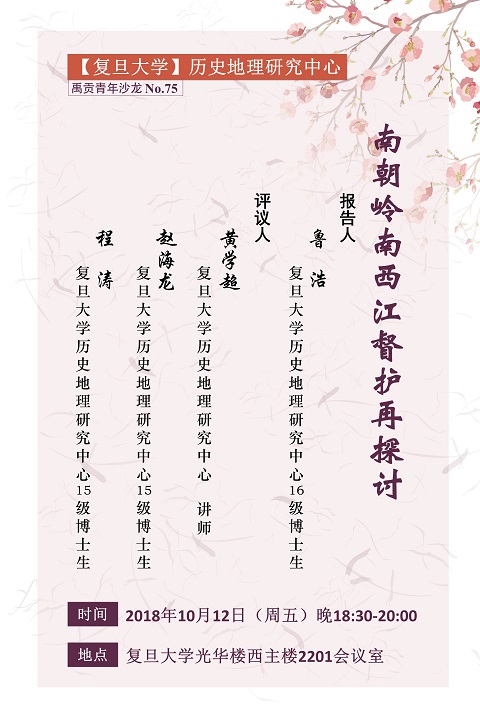 【复旦大学】历史地理研究中心
禹贡青年沙龙 No.75
南朝岭南西江督护再探讨
报告人
鲁 浩
复旦大学历史地理研究中心16级博士生
评议人
黄学超
复旦大学历史地理研究中心 讲师
赵海龙
复旦大学历史地理研究中心15级博士生
程 涛
复旦大学历史地理研究中心15级博士生
时间 2018年10月12日（周五）晚18:30-20:00
地点 复旦大学光华楼西主楼2201会议室